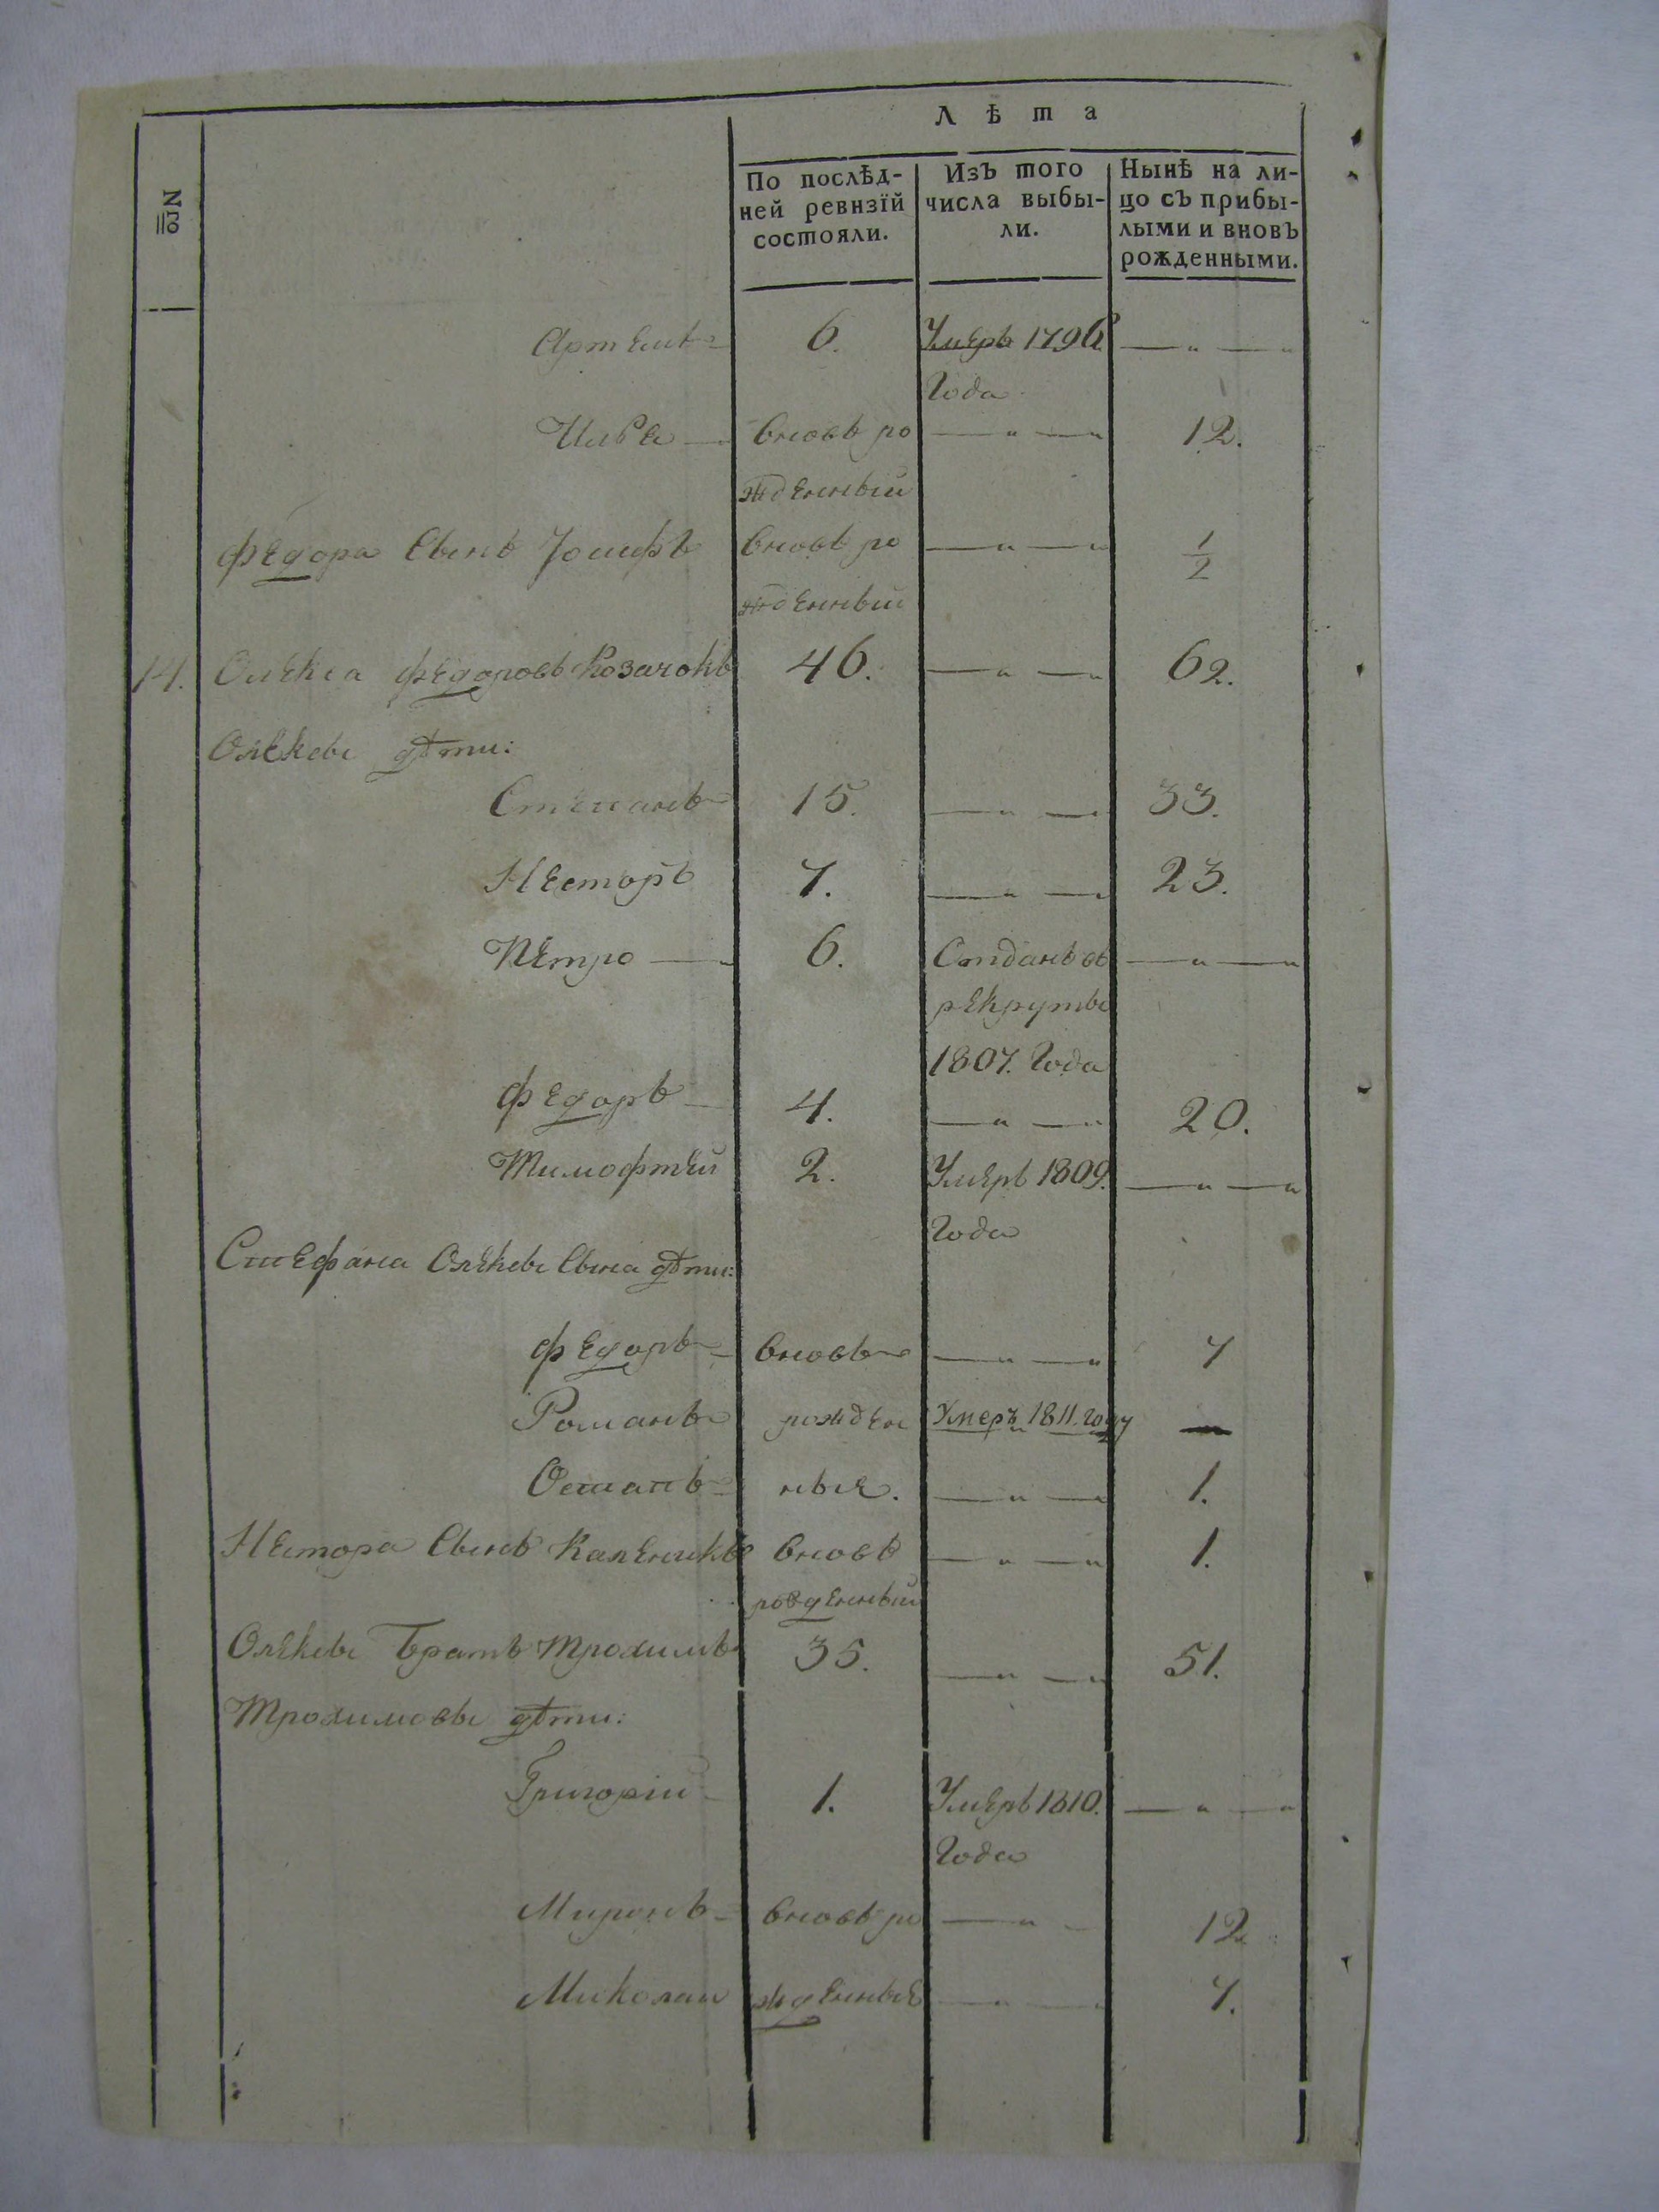 Лѣта
№
По послѣд- Изъ того Нынѣ на ли-
ней ревизїй числа выбы- цо съ прибы-
состояли. ли. лыми и вновь
рожденными.
Артемъ 6. Умеръ 1796
Года
Илья вновь ро — „ — 12.
жденный
Федора Сынъ Іосифъ вновь ро — „ — 1/2
жденный
14. Олекса Федоровъ Козачокъ 46. — „ — 62.
Олексы дѣти:
Степанъ 15. — „ — 33.
Несторъ 7. — „ — 23.
Петро — 6. Отданъ въ — „ —
рекруты
1807. Года
Федоръ 4. — „ — 20.
Тимофтей 2. Умеръ 1809. — „ —
Года
Стефана Олексы Сына дѣти:
Федоръ вновь — „ — 7
Романъ рожден Умеръ 1811. году —
Остапъ ныя. — „ — 1.
Нестора Сынъ Каленикъ вновь — „ — 1.
рожденный
Олексы Братъ Трохимъ 35. — „ — 51.
Трохимовы дѣти:
Григорій 1. Умеръ 1810. — „ —
Года
Миронъ вновь ро — „ — 12
Миколаи жденные — „ — 7.